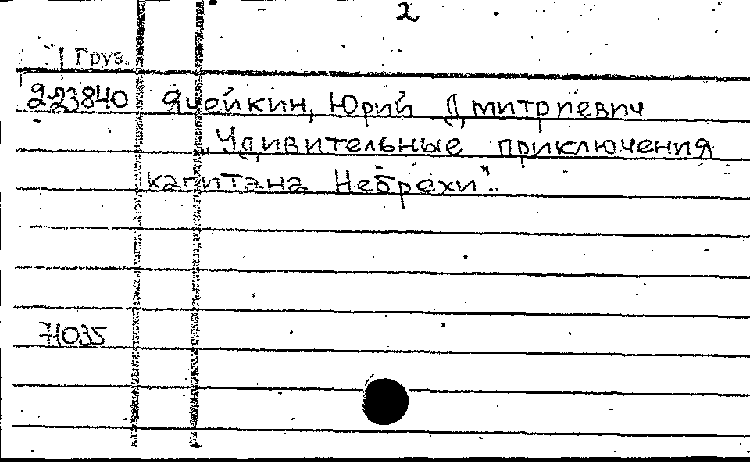 2
1 Груз.
223840 Ячейкин, Юрий Дмитриевич
„Удивительные приключения
капитана Небрехи".
71035